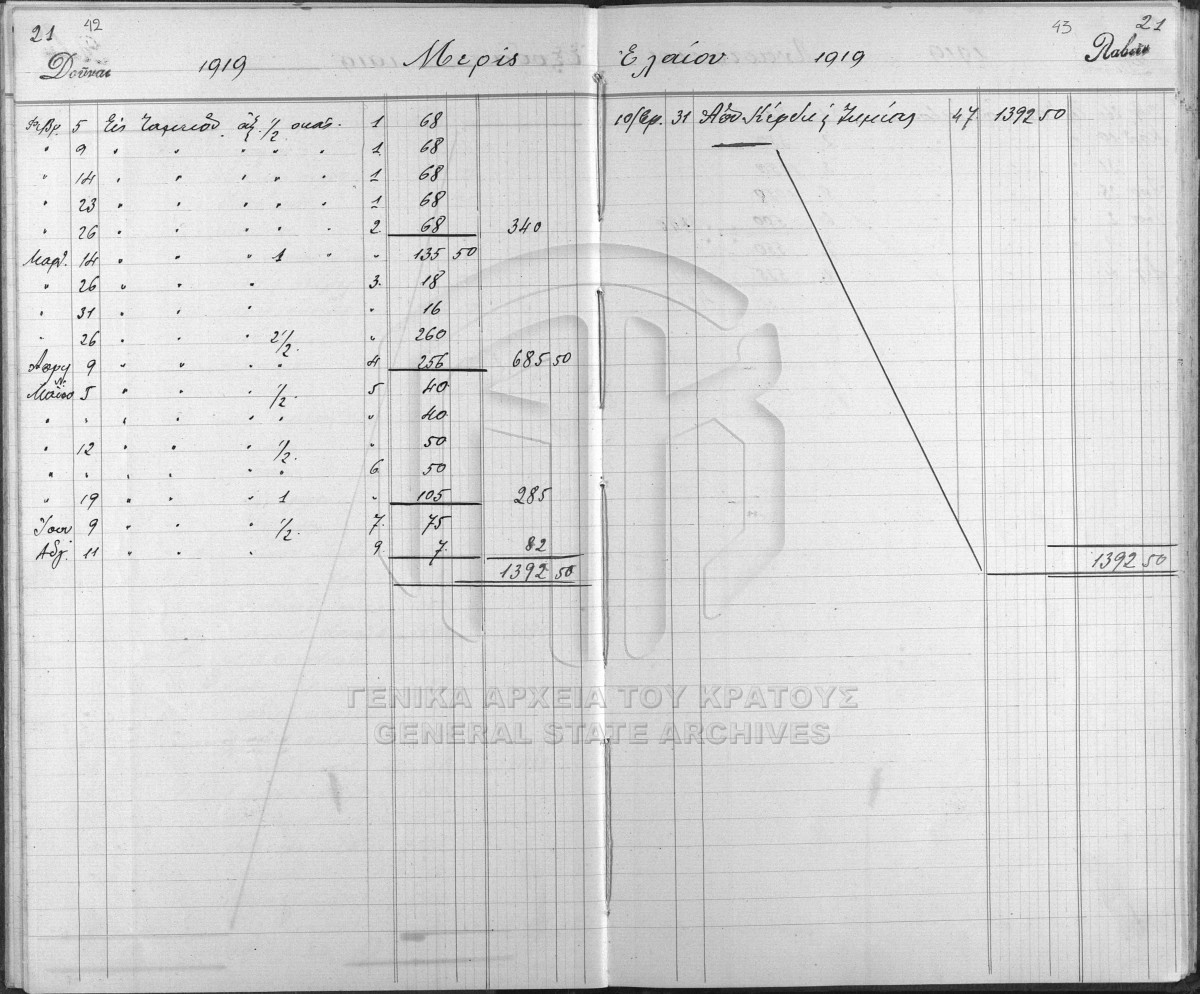 21 42
Δοῦναι 1919 Μερὶς
Φεβρ. 5 Εἰς Ταμεῖον ἀξ. 1/2 οκαδ. 1 68
" 9 " " " " " 1 68
" 14 " " " " " 1 68
" 23 " " " " " 1 68
" 26 " " " " " 2 68 340
Μαρτ. 14 " " " 1 " " 135 50
" 26 " " " 3 18
" 31 " " " " 16
" 26 " " " 2 1/2 " 260
Απριλ 9 " " " " 4 256 685 50
Μαΐου 5 " " " 1/2 5 40
" " " " " " " 40
" 12 " " " 1/2 " 50
" " " " " " 6 50
" 19 " " " 1 " 105 285
Ιουν 9 " " " 1/2 7 75
Αὐγ. 11 " " " 9 7 82
1392 50
43 21
Ελαίου 1919 Λαβεῖν
31 Ἀπὸ Κέρδη & Ζημίας 47 1392 50
1392 50
ΓΕΝΙΚΑ ΑΡΧΕΙΑ ΤΟΥ ΚΡΑΤΟΥΣ
GENERAL STATE ARCHIVES